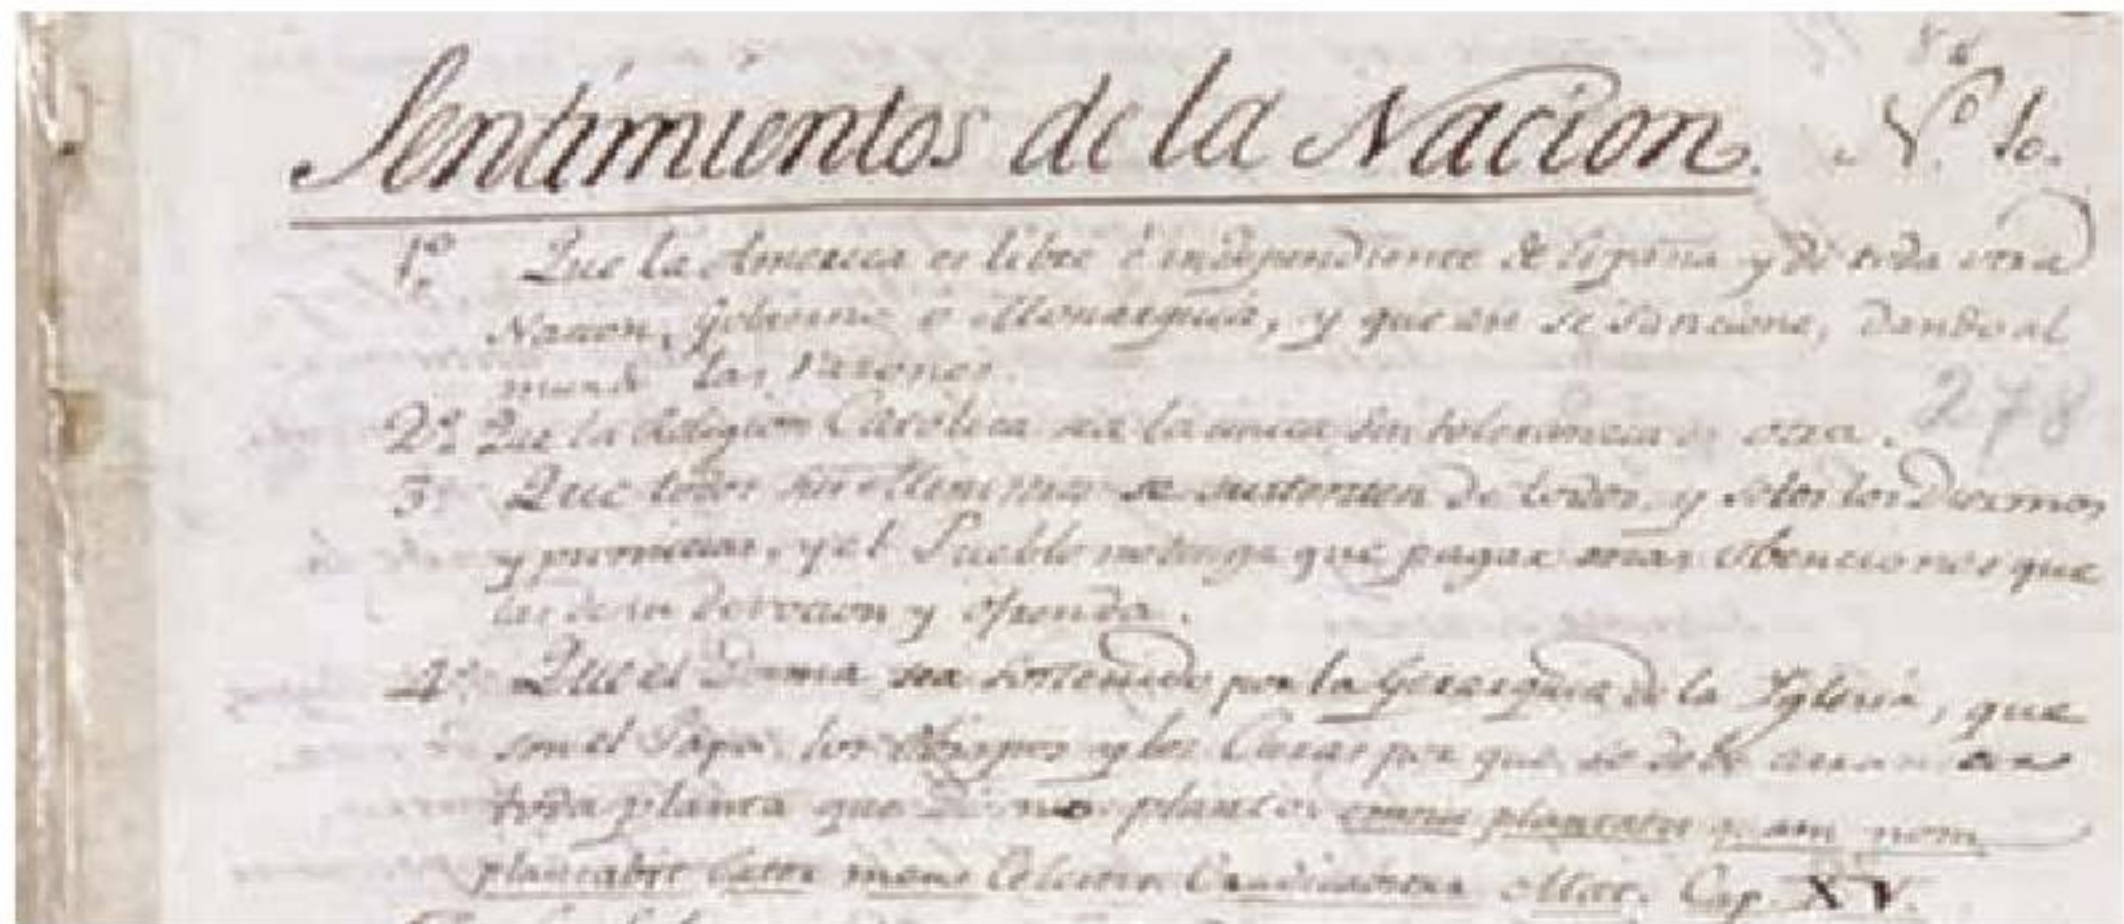 Sentimientos de la Nacion. Nº. 10.
1º. Que la America es libre é independiente de España y de toda otra
Nacion, Gobierno ó Monarquia, y que asi se sancione, dando al
mundo las razones.
2º. Que la Religion Catolica sea la unica sin tolerancia de otra.
278
3º. Que todos sus Ministros se sustenten de todos, y solos los Diezmos
y primicias, y el Pueblo no tenga que pagar mas obenciones que
las de su devocion y ofrenda.
4º. Que el Dogma sea sostenido por la Gerarquia de la Yglesia, que
son el Papa, los Obispos y los Curas por que se debe arrancar
toda planta que Dios no planto: omnis plantatis quam nom
plantabit Pater meus Celestis Cradicabitur Mat. Cap. XV.